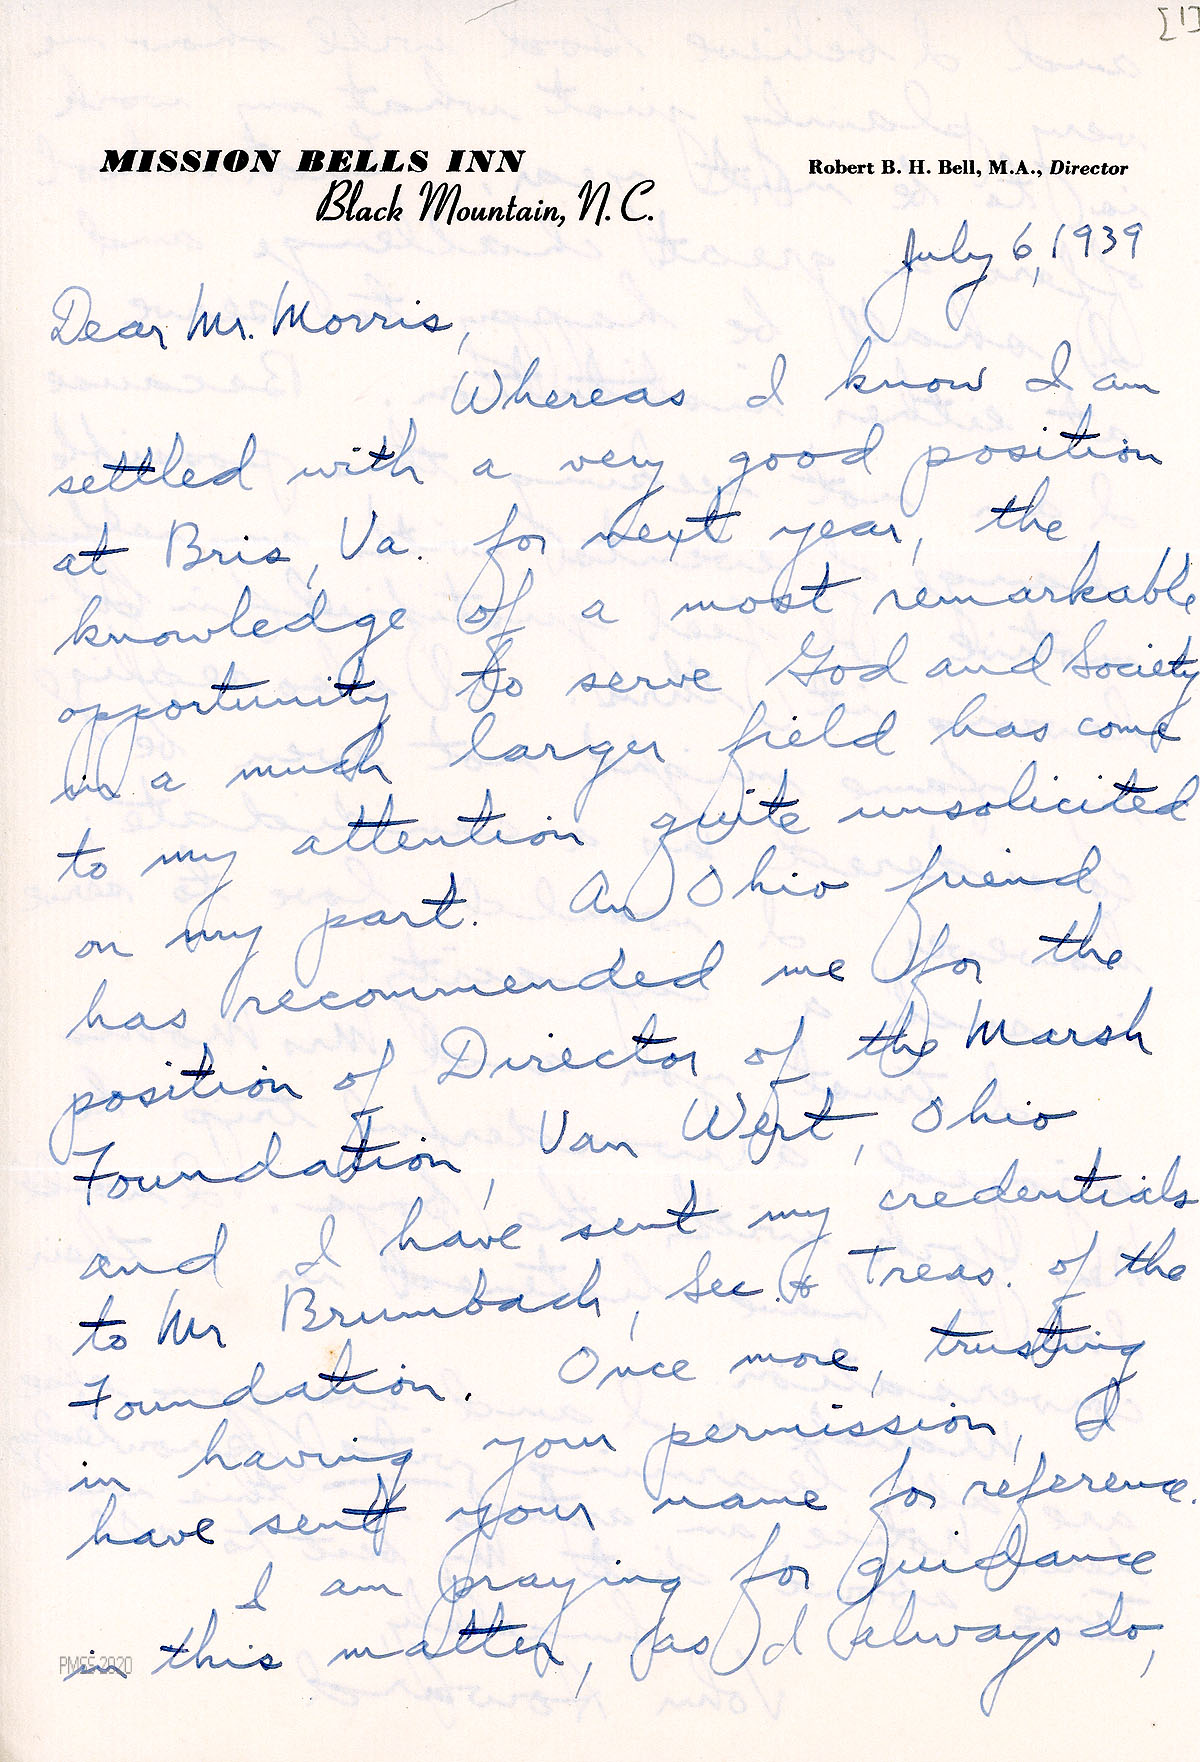 [1]
MISSION BELLS INN
Black Mountain, N.C.
Robert B. H. Bell, M.A., Director
July 6, 1939
Dear Mr. Morris,
Whereas I know I am
settled with a very good position
at Bris, Va. for next year, the
knowledge of a most remarkable
opportunity to serve God and Society
in a much larger field has come
to my attention quite unsolicited
on my part. An Ohio friend
has recommended me for the
position of Director of the Marsh
Foundation, Van Wert, Ohio
and I have sent my credentials
to Mr Brumbach, Sec. & Treas. of the
Foundation. Once more, trusting
in having your permission, I
have sent your name for reference.
I am praying for guidance
in this matter, as I always do,
PMSS 2020